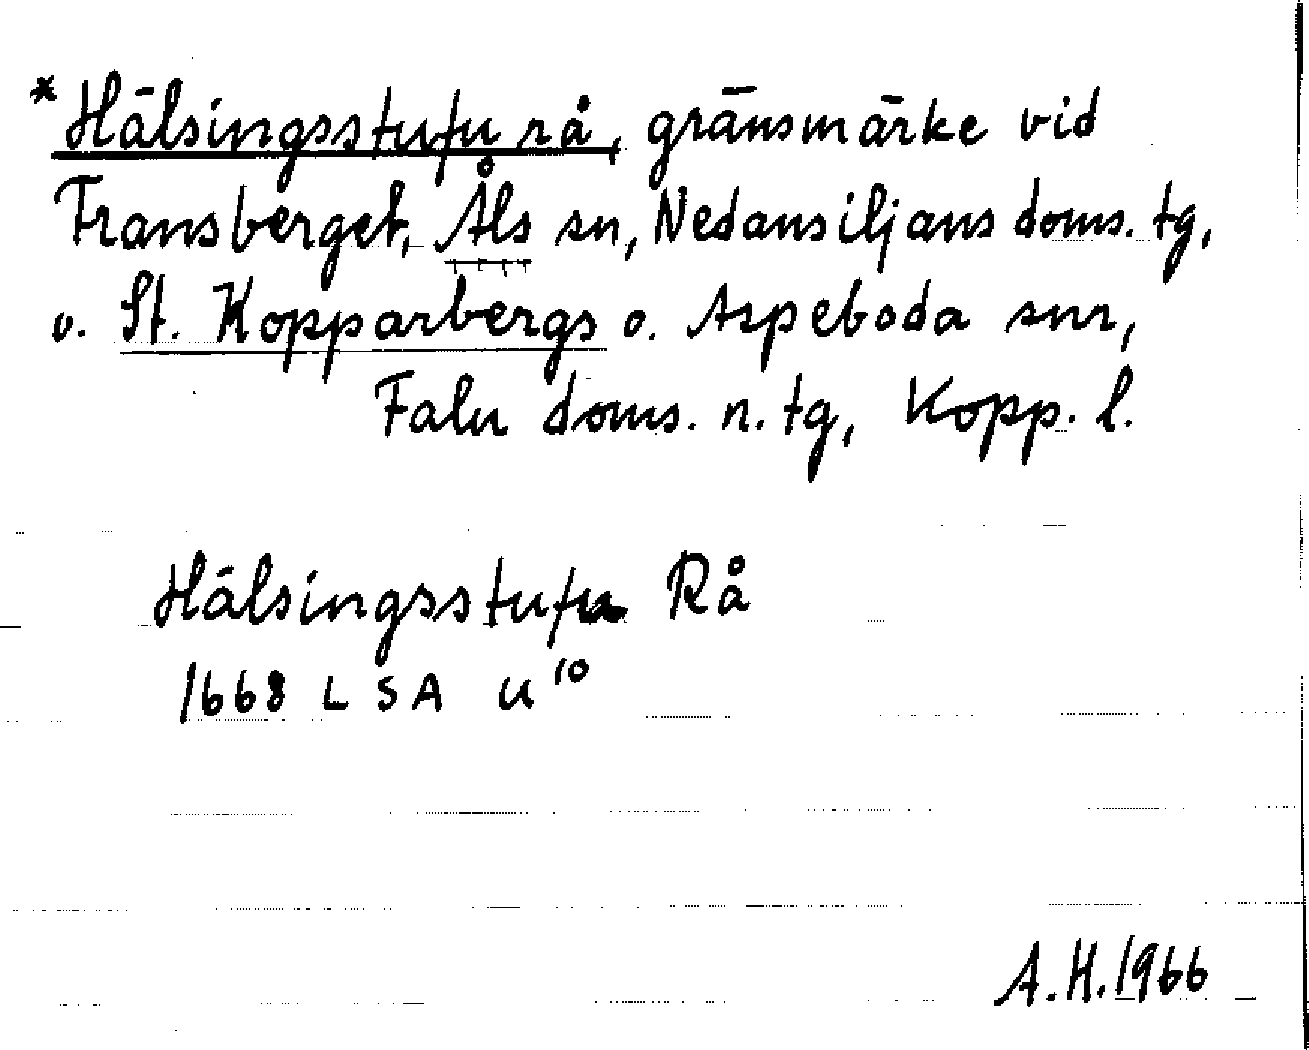 *Hälsingsstufu rå, gränsmärke vid
Fransberget, Åls sn, Nedansiljans doms. tg,
o. St. Kopparbergs o. Aspeboda snr,
Falu doms. n. tg, Kopp. l.
Hälsingsstufu Rå
1668 LSA U¹⁰
A.H. 1966